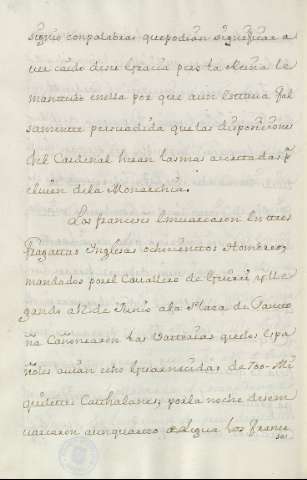 signio con palabras que podian significar a
ver caido desu Gracia pero la Reina le
mantubo enella por que aun Estava fal
samente persuadida que las disposiciones
del Cardinal heran las mas acertadas p.r
el vien dela Monarchia.
Los franceses Embarcaron En tres
fragattas Inglesas ochocienttos Hombres,
mandados por el Cavallero de Guiri y lle
gando a 12 de Junio ala Plaza de Santo
ña Cañonearon las Vatterias que los Espa
ñoles avian echo Guarnecidas de 700 Mi
queletes Catthalanes, por la noche desem
varcaron a un quarto de legua los france
ses